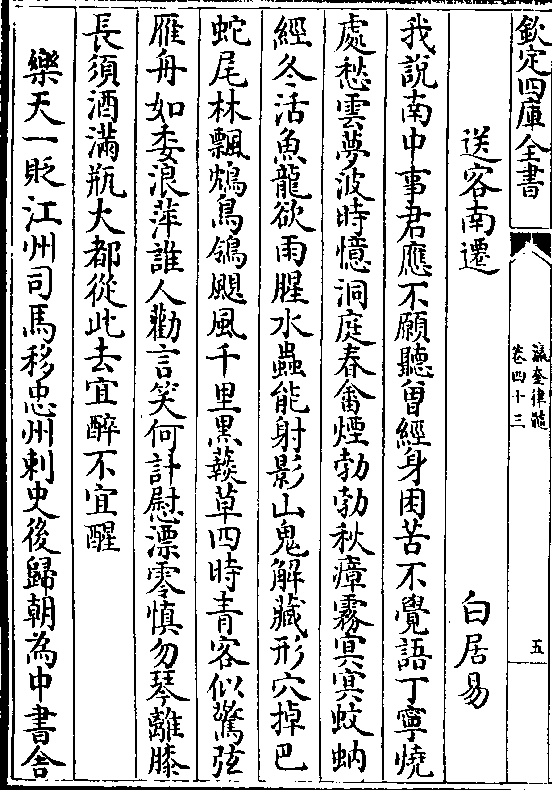 欽定四庫全書
瀛奎律髓
卷四十三
五
送客南遷
白居易
我說南中事君應不願聽曾經身困苦不覺語丁寧燒
處愁雲夢波時憶洞庭春畬煙勃勃秋瘴霧冥冥蚊蚋
經冬活魚龍欲雨腥水蟲能射影山鬼解藏形穴掉巴
蛇尾林飄鴆鳥翎颶風千里黑䕭草四時青客似驚弦
雁舟如委浪萍誰人勸言笑何計慰漂零慎勿琴離膝
長須酒滿瓶大都從此去宜醉不宜醒
樂天一貶江州司馬移忠州刺史後歸朝為中書舍